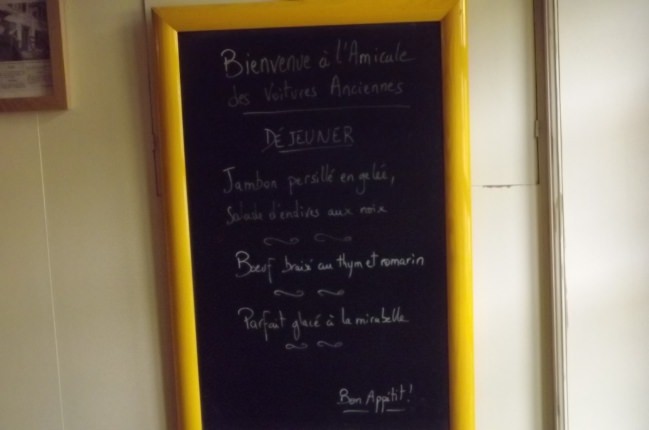 Bienvenue à l'Amicale
des Voitures Anciennes
DÉJEUNER
Jambon persillé en gelée,
Salade d'endives aux noix
Bœuf braisé au thym et romarin
Parfait glacé à la mirabelle
Bon Appétit!